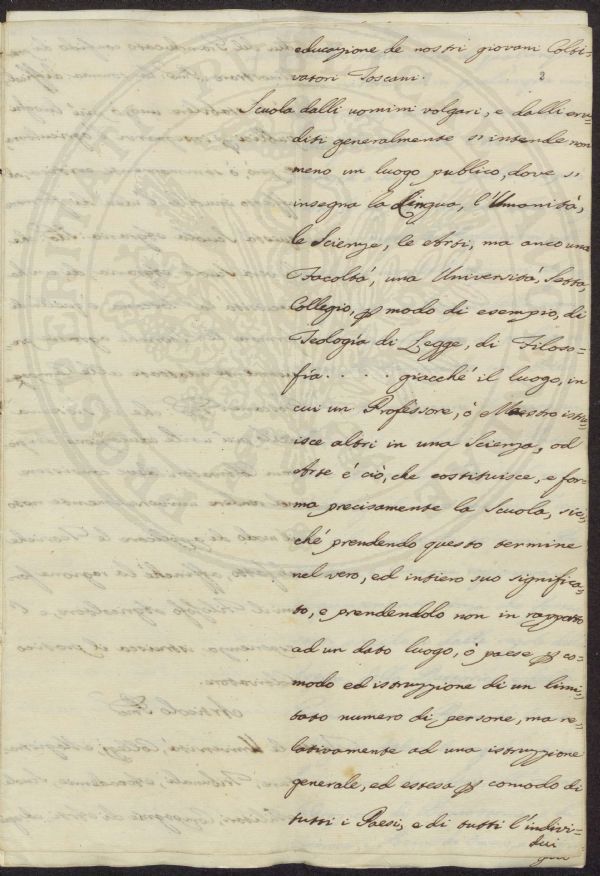 educazione de nostri giovani Colti-
vatori Toscani.
2
Scuola dalli uomini volgari, e dalli eru=
diti generalmente s'intende non
meno un luogo publico, dove s'
insegna la Lingua, l'Umanità,
le Scienze, le Arti, ma anco una
Facoltà, una Università, Setta
Collegio, p modo di esempio, di
Teologia di Legge, di Filoso=
fia . . . . giacché il luogo, in
cui un Professore, ò Maestro istru=
isce altri in una Scienza, od
Arte é ciò, che costituisce, e for=
ma precisamente la Scuola, sic=
ché prendendo questo termine
nel vero, ed intiero suo significa=
to, e prendendolo non in rapporto
ad un dato luogo, o paese p co=
modo ed istruzzione di un limi=
tato numero di persone, ma re=
lativamente ad una istruzzione
generale, ed estesa p comodo di
tutti i Paesi, e di tutti l'indivi=
dui